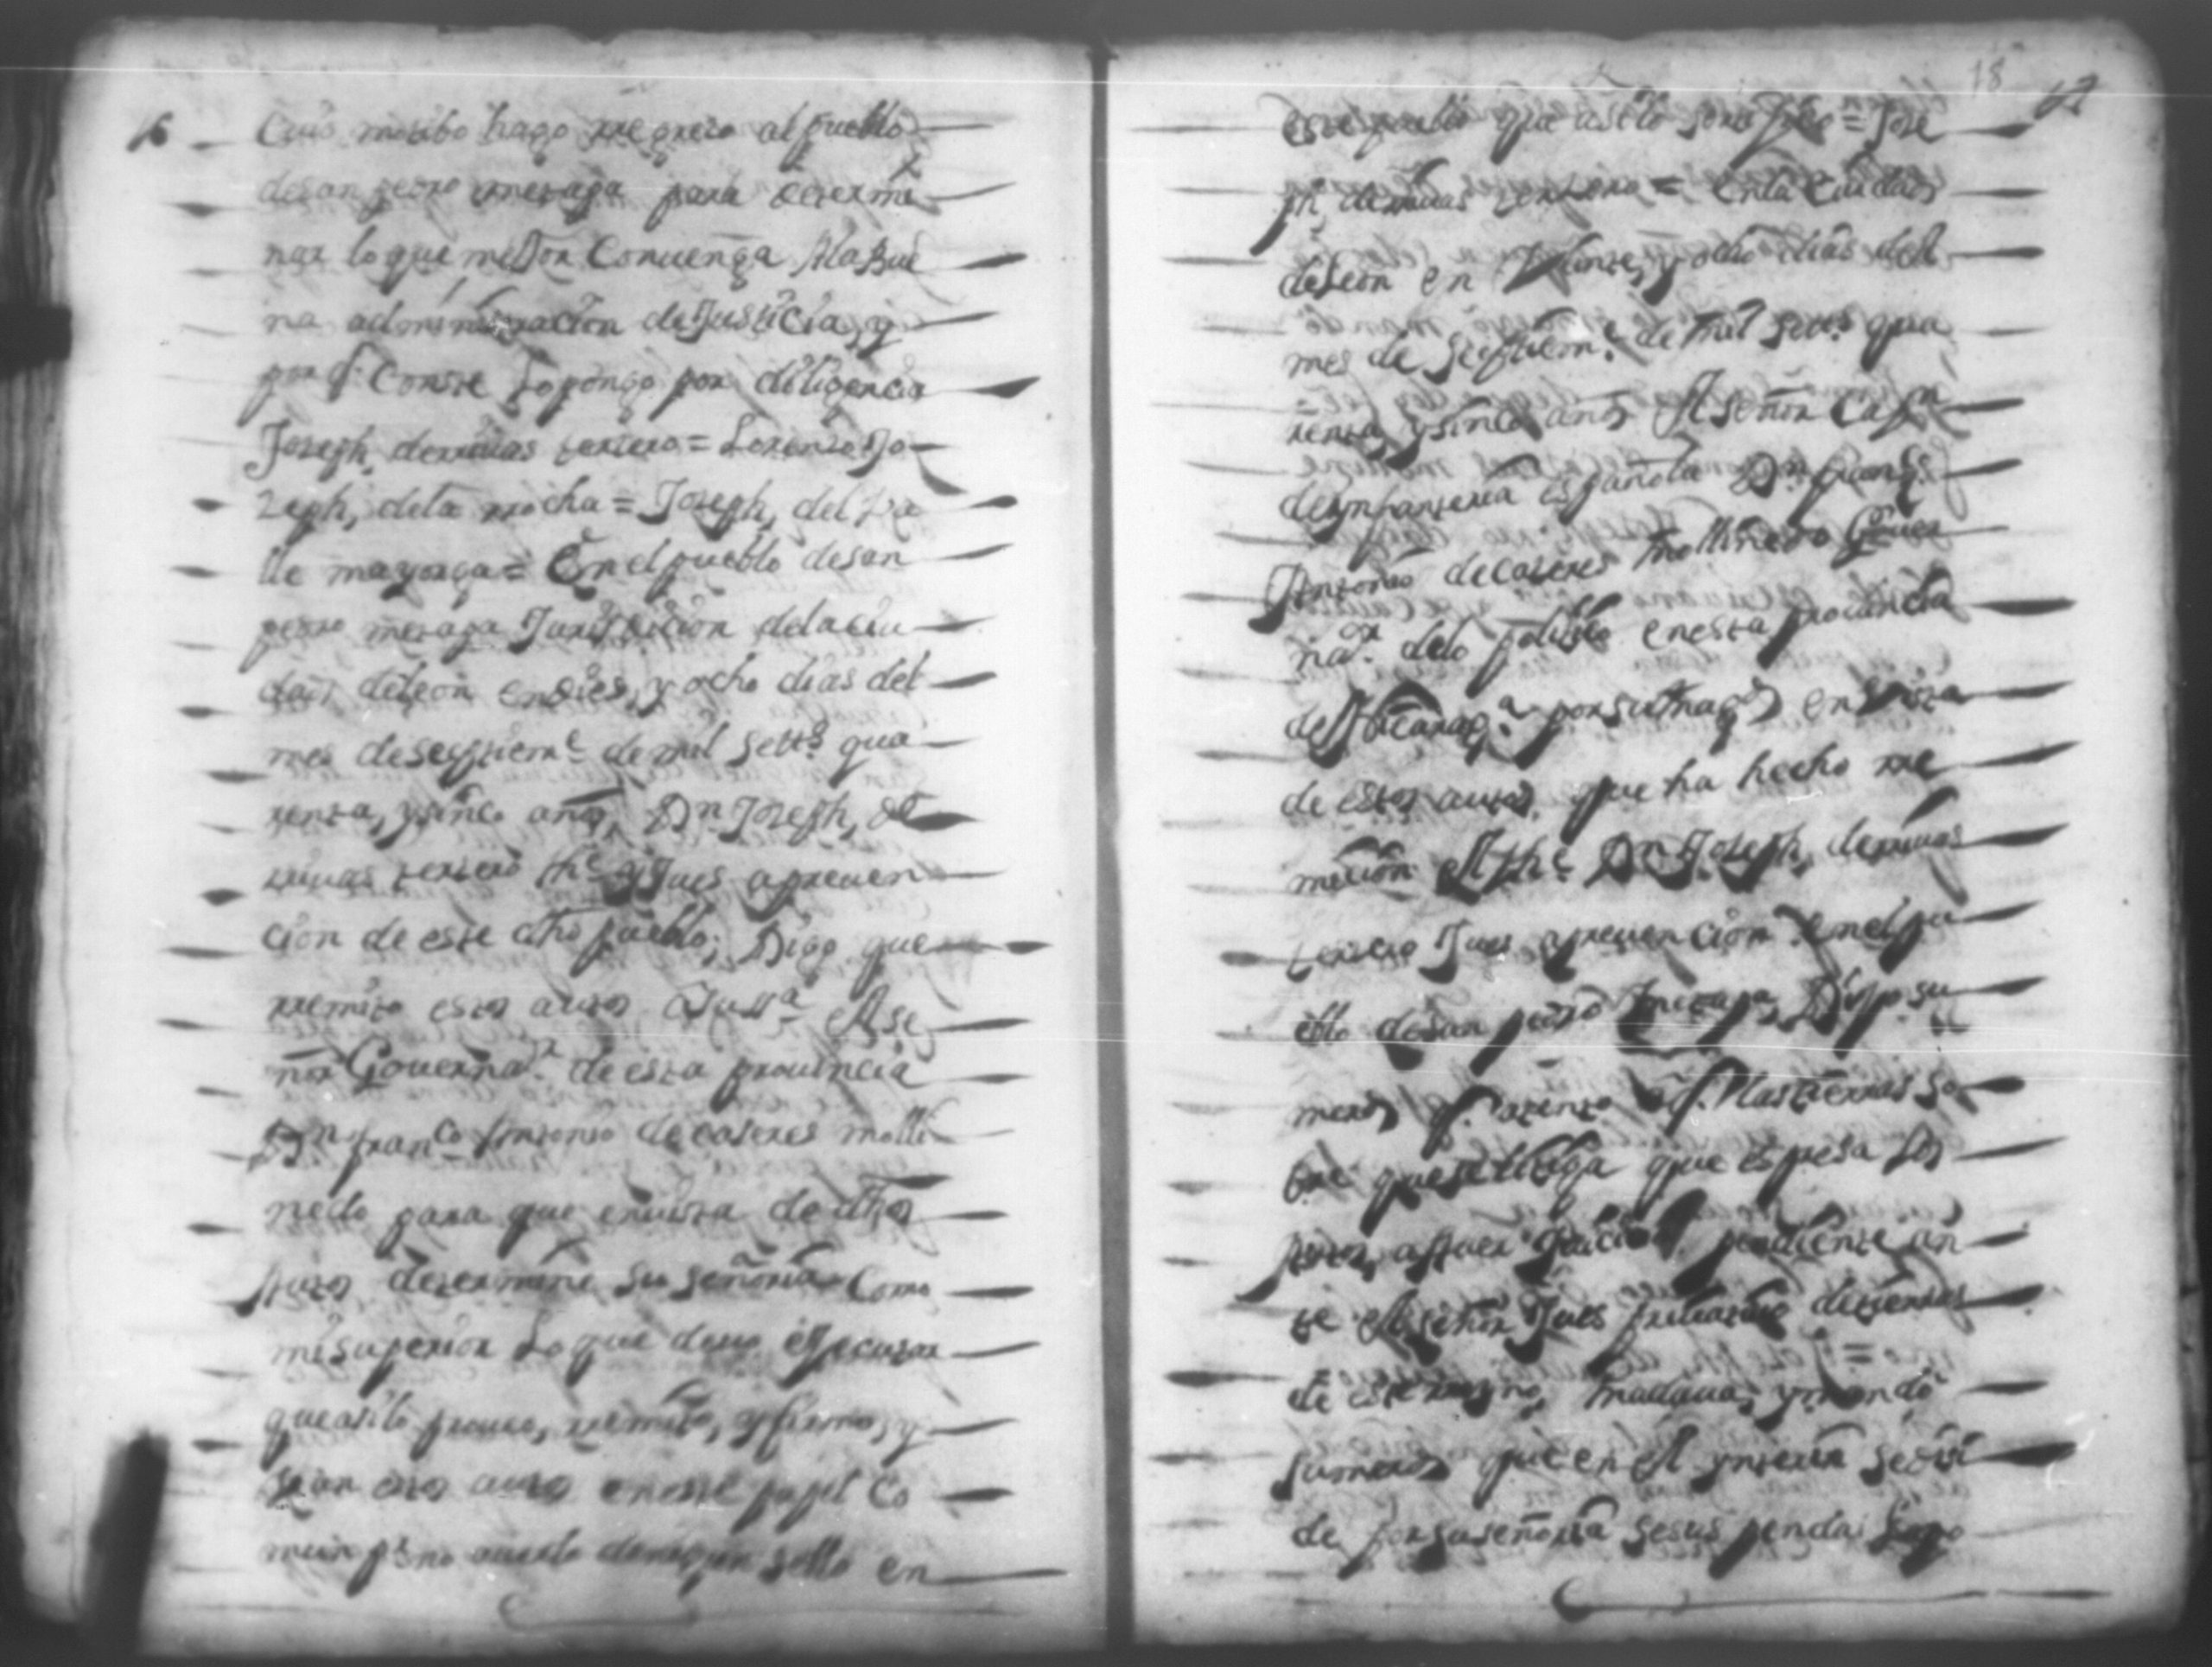 16
Cuio motibo hago rregreso al pueblo
desan pedro metapa para determi
nar lo que mejor Convenga A la Bue
na administracion de Justicia, y
por q.e Conste Lo pongo por diligencia
Joseph, derrivas tersero = Lorenso Jo
zeph, dela rrocha = Joseph, del Va
lle mayorga = En el pueblo desan
pedro metapa Jurisdicion dela ciu
dad deleon endies, y ocho dias del
mes desesptiem.e de mil Sett.s qua
renta, y sinco años, Dn Joseph, de
rrivas tersero th.e y Jues apreven
cion de este dho pueblo; Digo que
rremito estos autos A su ss.a El Se
ñor Governa.r de esta provincia
Dn fran.co Antonio de caseres molli
nedo para que envista de dhos
Autos determine su señoria Como
mi superior Lo que devo ejecutar
que asi lo proveo, rremito, y firmo, y
Ban estos autos en este papel Co
mun p.r no averlo deningun sello en
18
este pueblo que asi lo sertifico = Jose
ph, derrivas tersero = En la Ciudad
deLeon en Veinte, y ocho dias del
mes de Septiem.e de mil Sett.s qua
renta, y sinco años El Señor Cap.n
de ynfanteria española Dn fran.co
Antonio de caseres mollinedo Gover
na.or delo politico en esta provincia
de Nicarag.a por su Mag.d en vista
de estos autos que ha hecho rre
micion El th.e Dn Joseph, derrivas
tersero Jues aprevencion en el pu
eblo desan pedro metapa, Dijo su
merd q.e atento a q.e Las tierras so
bre que se litiga que espresa Los
Autos, a fuer pendiente an
te el señor Jues privativo detierras
de este rreyno, mandava, y mando
su merd que en El ynterin se deci
de por su señoria se sus penda; Lo pro